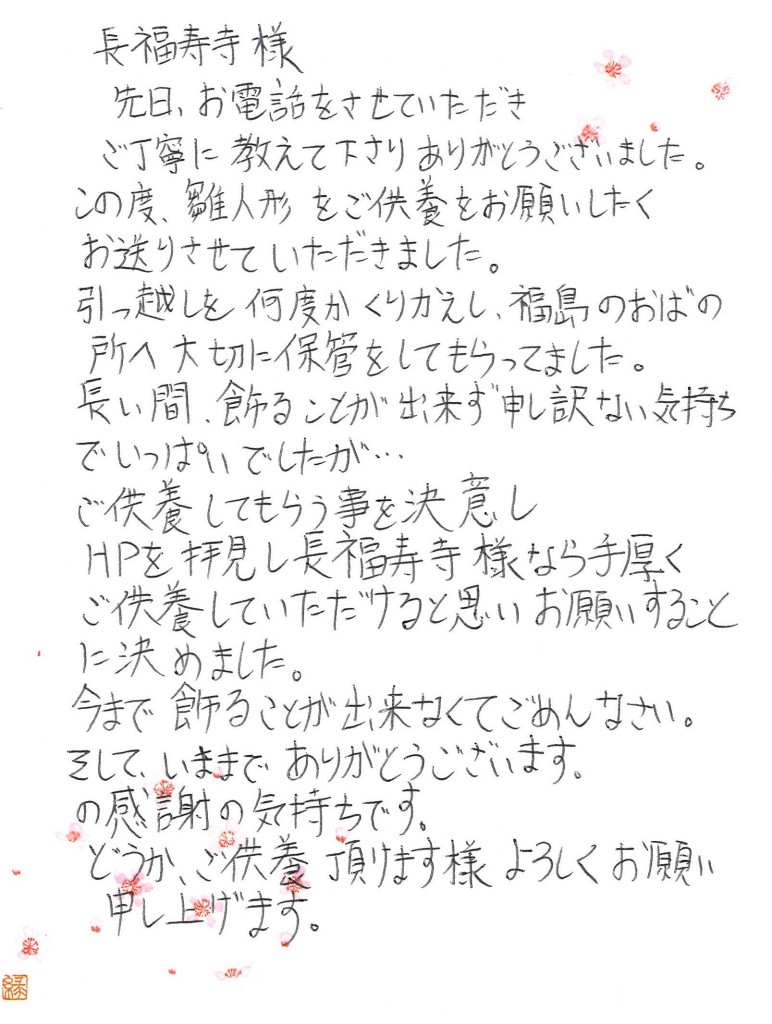 長福寿寺様
先日、お電話をさせていただき
ご丁寧に教えて下さりありがとうございました。
この度、雛人形をご供養をお願いしたく
お送りさせていただきました。
引っ越しを何度かくりかえし、福島のおばの
所へ大切に保管をしてもらってました。
長い間、飾ることが出来ず申し訳ない気持ち
でいっぱいでしたが…
ご供養してもらう事を決意し
HPを拝見し長福寿寺様なら手厚く
ご供養していただけると思いお願いすること
に決めました。
今まで飾ることが出来なくてごめんなさい。
そして、いままでありがとうございます。
の感謝の気持ちです。
どうか、ご供養頂けます様よろしくお願い
申し上げます。
縁